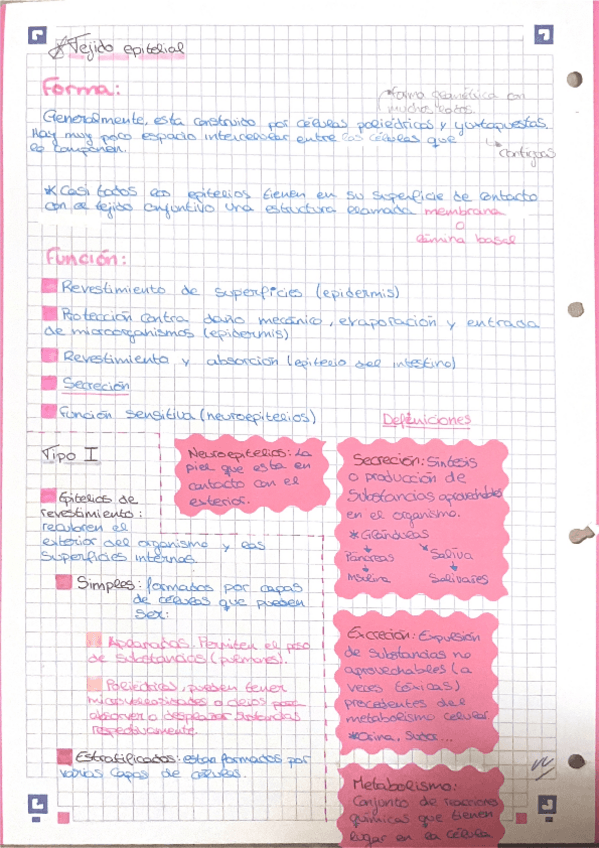 *Tejido epitelial
Forma:
*forma geométrica con
muchos lados.
Generalmente, esta construido por células poliédricas y yuxtapuestas.
Hay muy poco espacio intercelular entre las células que
lo componen.
contiguas
*Casi todos los epitelios tienen en su superficie de contacto
con el tejido conjuntivo una estructura llamada membrana
o
lámina basal
Función:
Revestimiento de superficies (epidermis)
Protección contra daño mecánico, evaporación y entrada
de microorganismos (epidermis)
Revestimiento y absorción (epitelio del intestino)
Secreción
Función sensitiva (neuroepitelios)
Tipo I
Epitelios de
revestimiento:
recubren el
exterior del organismo y las
superficies internas
Simples: formados por capas
de células que pueden
ser:
Aplanados. Permiten el paso
de substancias (pulmones).
Poliédricas, pueden tener
microvellosidades o cilios para
absorver o desplazar sustancias
respectivamente.
Estratificados: estan formados por
varias capas de células.
Neuroepitelios: La
piel que esta en
contacto con el
exterior.
Definiciones
Secreción: Síntesis
o producción de
substancias aprovechables
en el organismo.
*Glándulas
Páncreas Saliva
Salivares
Excreción: Expulsión
de substancias no
aprovechables (a
veces tóxicas)
precedentes del
metabolismo celular.
*Orina, Sudor...
Metabolismo:
Conjunto de reacciones
químicas que tienen
lugar en la célula